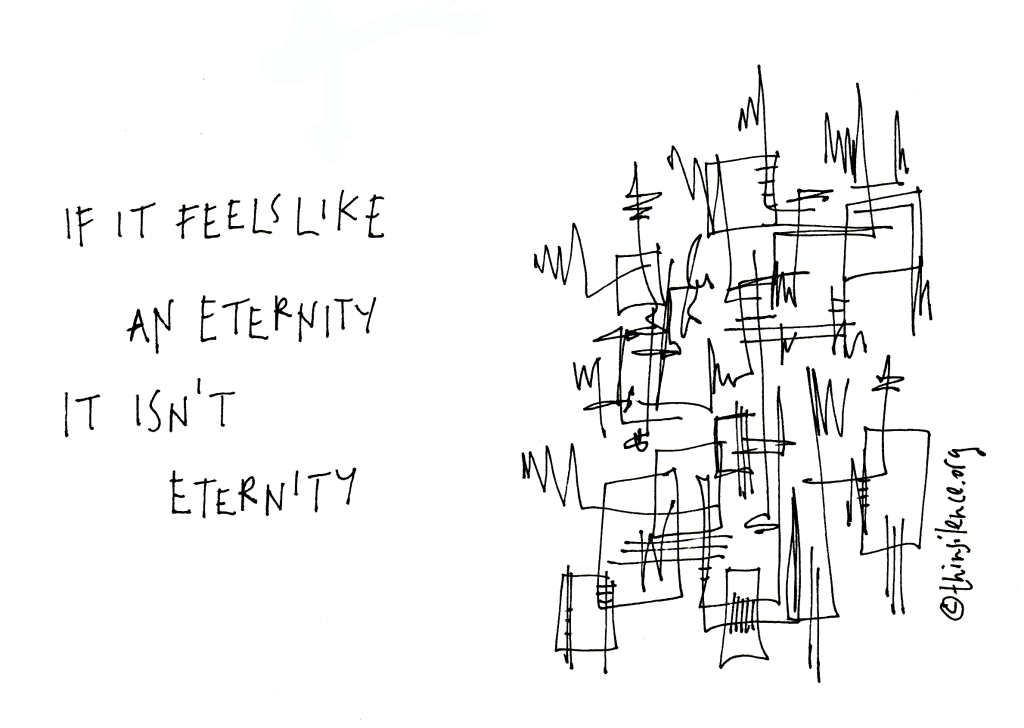 IF IT FEELS LIKE
AN ETERNITY
IT ISN'T
ETERNITY
©thinsilence.org